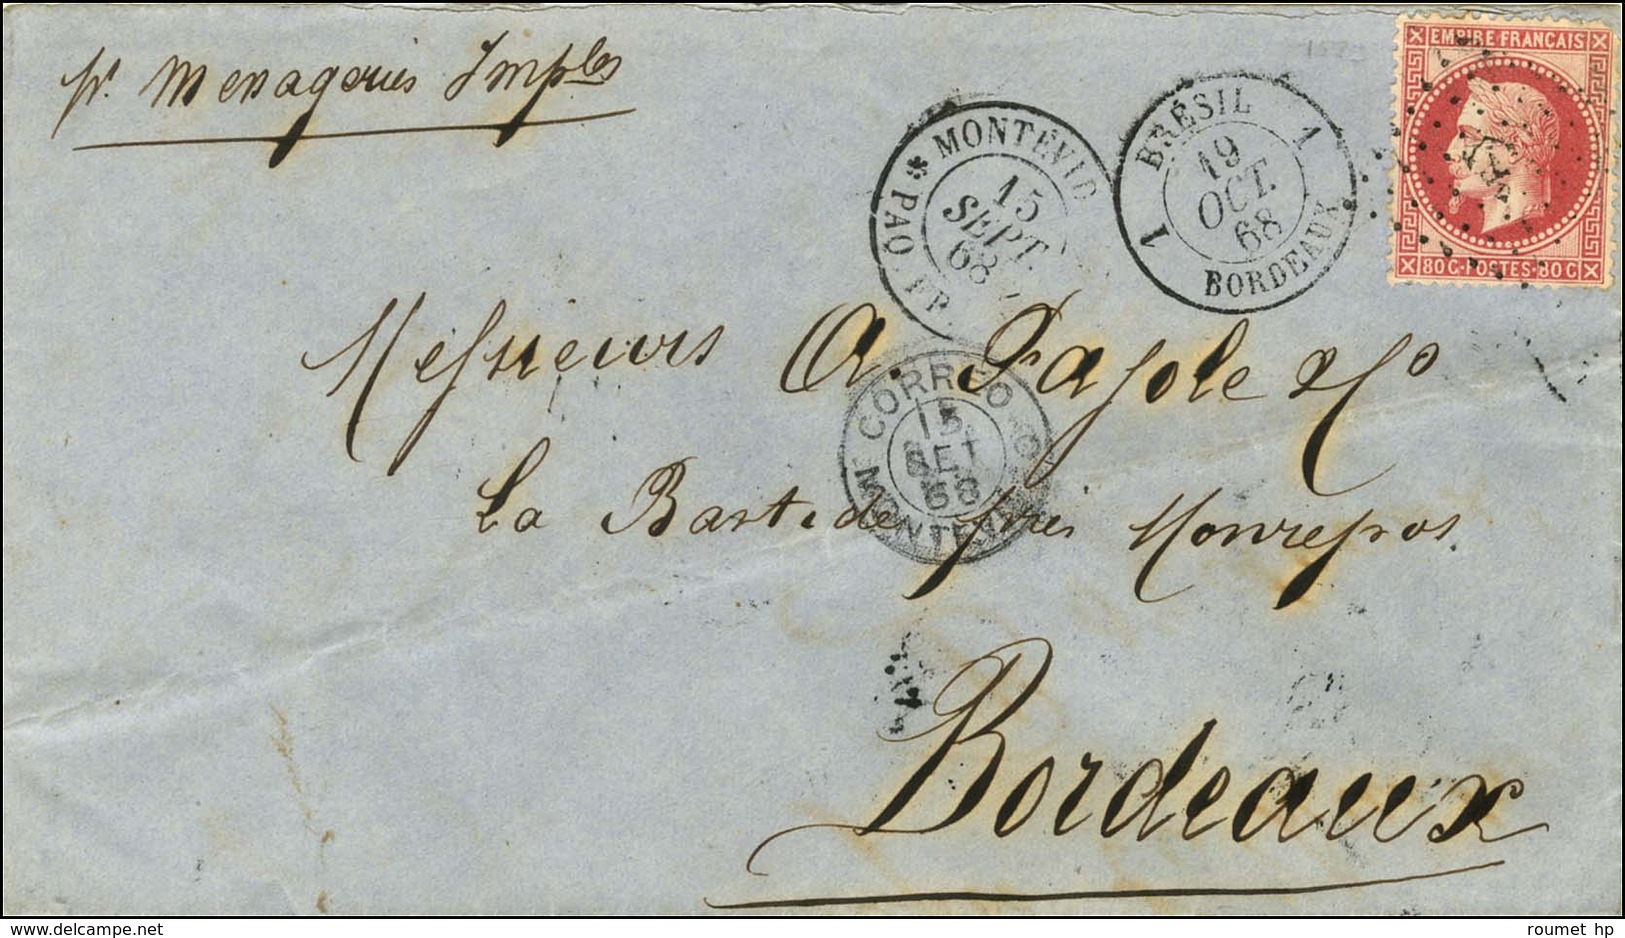 pr. Messageries Imples
EMPIRE FRANÇAIS
80 C · POSTES · 80 C
MONTEVID
PAQ. FR.
15
SEPT.
68
BRÉSIL
1 1
19
OCT.
68
BORDEAUX
Messieurs A. Fajole & Co
CORREO
15
SET
68
MONTEV
La Bastide près Monrepos
Bordeaux
delcampe.net
roumet hp